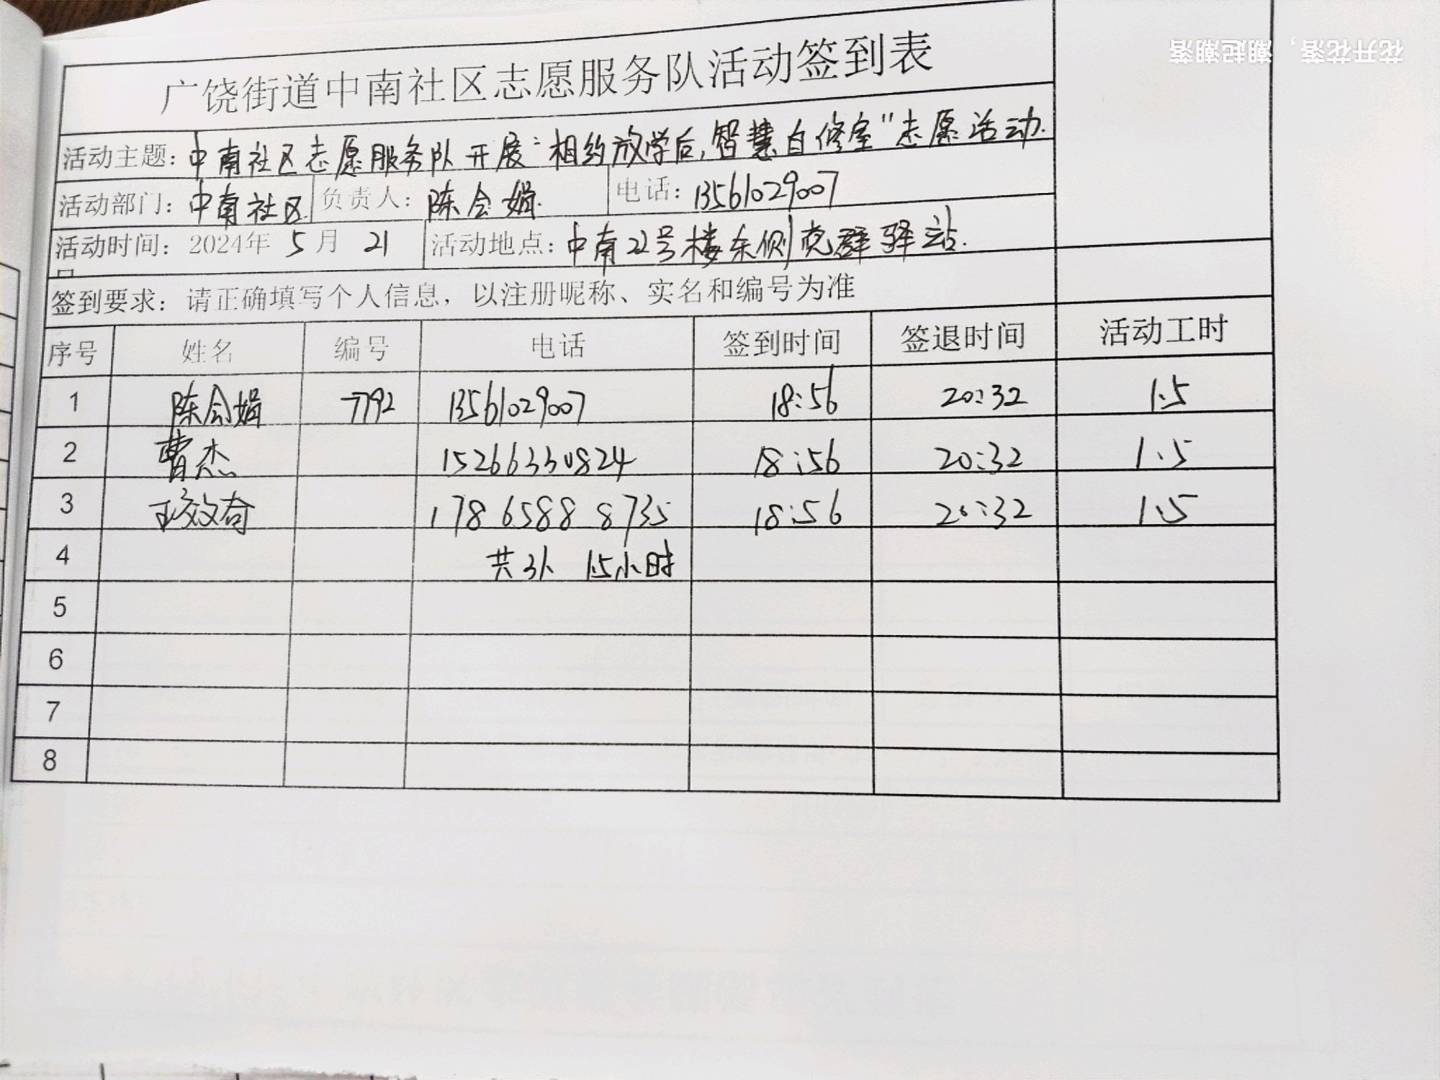 花开花落，潮起潮落
广饶街道中南社区志愿服务队活动签到表
活动主题：中南社区志愿服务队开展“相约放学后，智慧自修室”志愿活动.
活动部门：中南社区 负责人：陈会娟. 电话：13561029007
活动时间：2024年 5月 21日 活动地点：中南22号楼东侧党群驿站.
签到要求：请正确填写个人信息，以注册昵称、实名和编号为准
序号 姓名 编号 电话 签到时间 签退时间 活动工时
1 陈会娟 7792 13561029007 18:56 20:32 1.5
2 曹杰 15266330824 18:56 20:32 1.5
3 17865888735 18:56 20:32 1.5
4 共3人 1.5小时
5
6
7
8